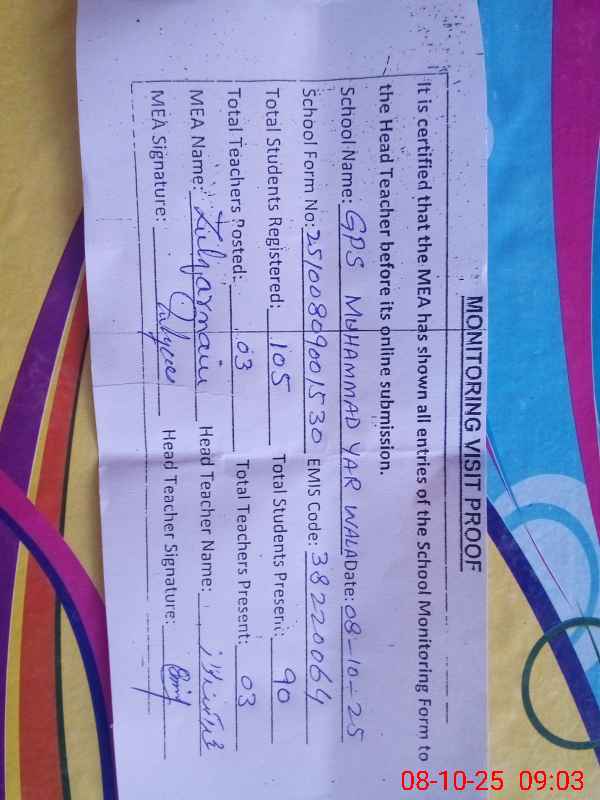 MONITORING VISIT PROOF
It is certified that the MEA has shown all entries of the School Monitoring Form to
the Head Teacher before its online submission.
School Name: GPS MUHAMMAD YAR WALA Date: 08-10-25
School Form No: 25100809001530 EMIS Code: 38220064
Total Students Registered: 105 Total Students Present: 90
Total Teachers Posted: 03 Total Teachers Present: 03
MEA Name: Zulqarnain Head Teacher Name:
MEA Signature: Head Teacher Signature:
08-10-25 09:03